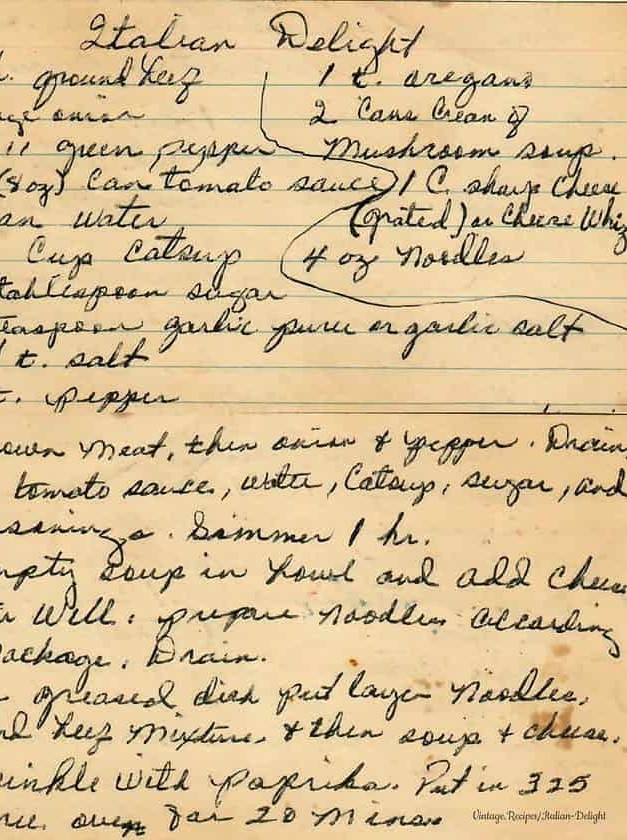 Italian Delight
. ground beef
ge onion
" green pepper
(8 oz) can tomato sauce
an water
Cup Catsup
tablespoon sugar
teaspoon garlic puree or garlic salt
t. salt
t. pepper
1 t. oregano
2 Cans Cream of
Mushroom soup.
1 C. sharp cheese
(grated) or Cheese Whiz
4 oz Noodles
own Meat, then onion & pepper. Drain,
tomato sauce, water, Catsup, sugar, and
sonings. Simmer 1 hr.
mpty soup in bowl and add cheese
ir Well. prepare Noodles according
package. Drain.
greased dish put layer Noodles,
nd beef Mixture, & then soup & cheese.
rinkle with paprika. Put in 325
ree oven for 20 Mins.
Vintage.Recipes/Italian-Delight